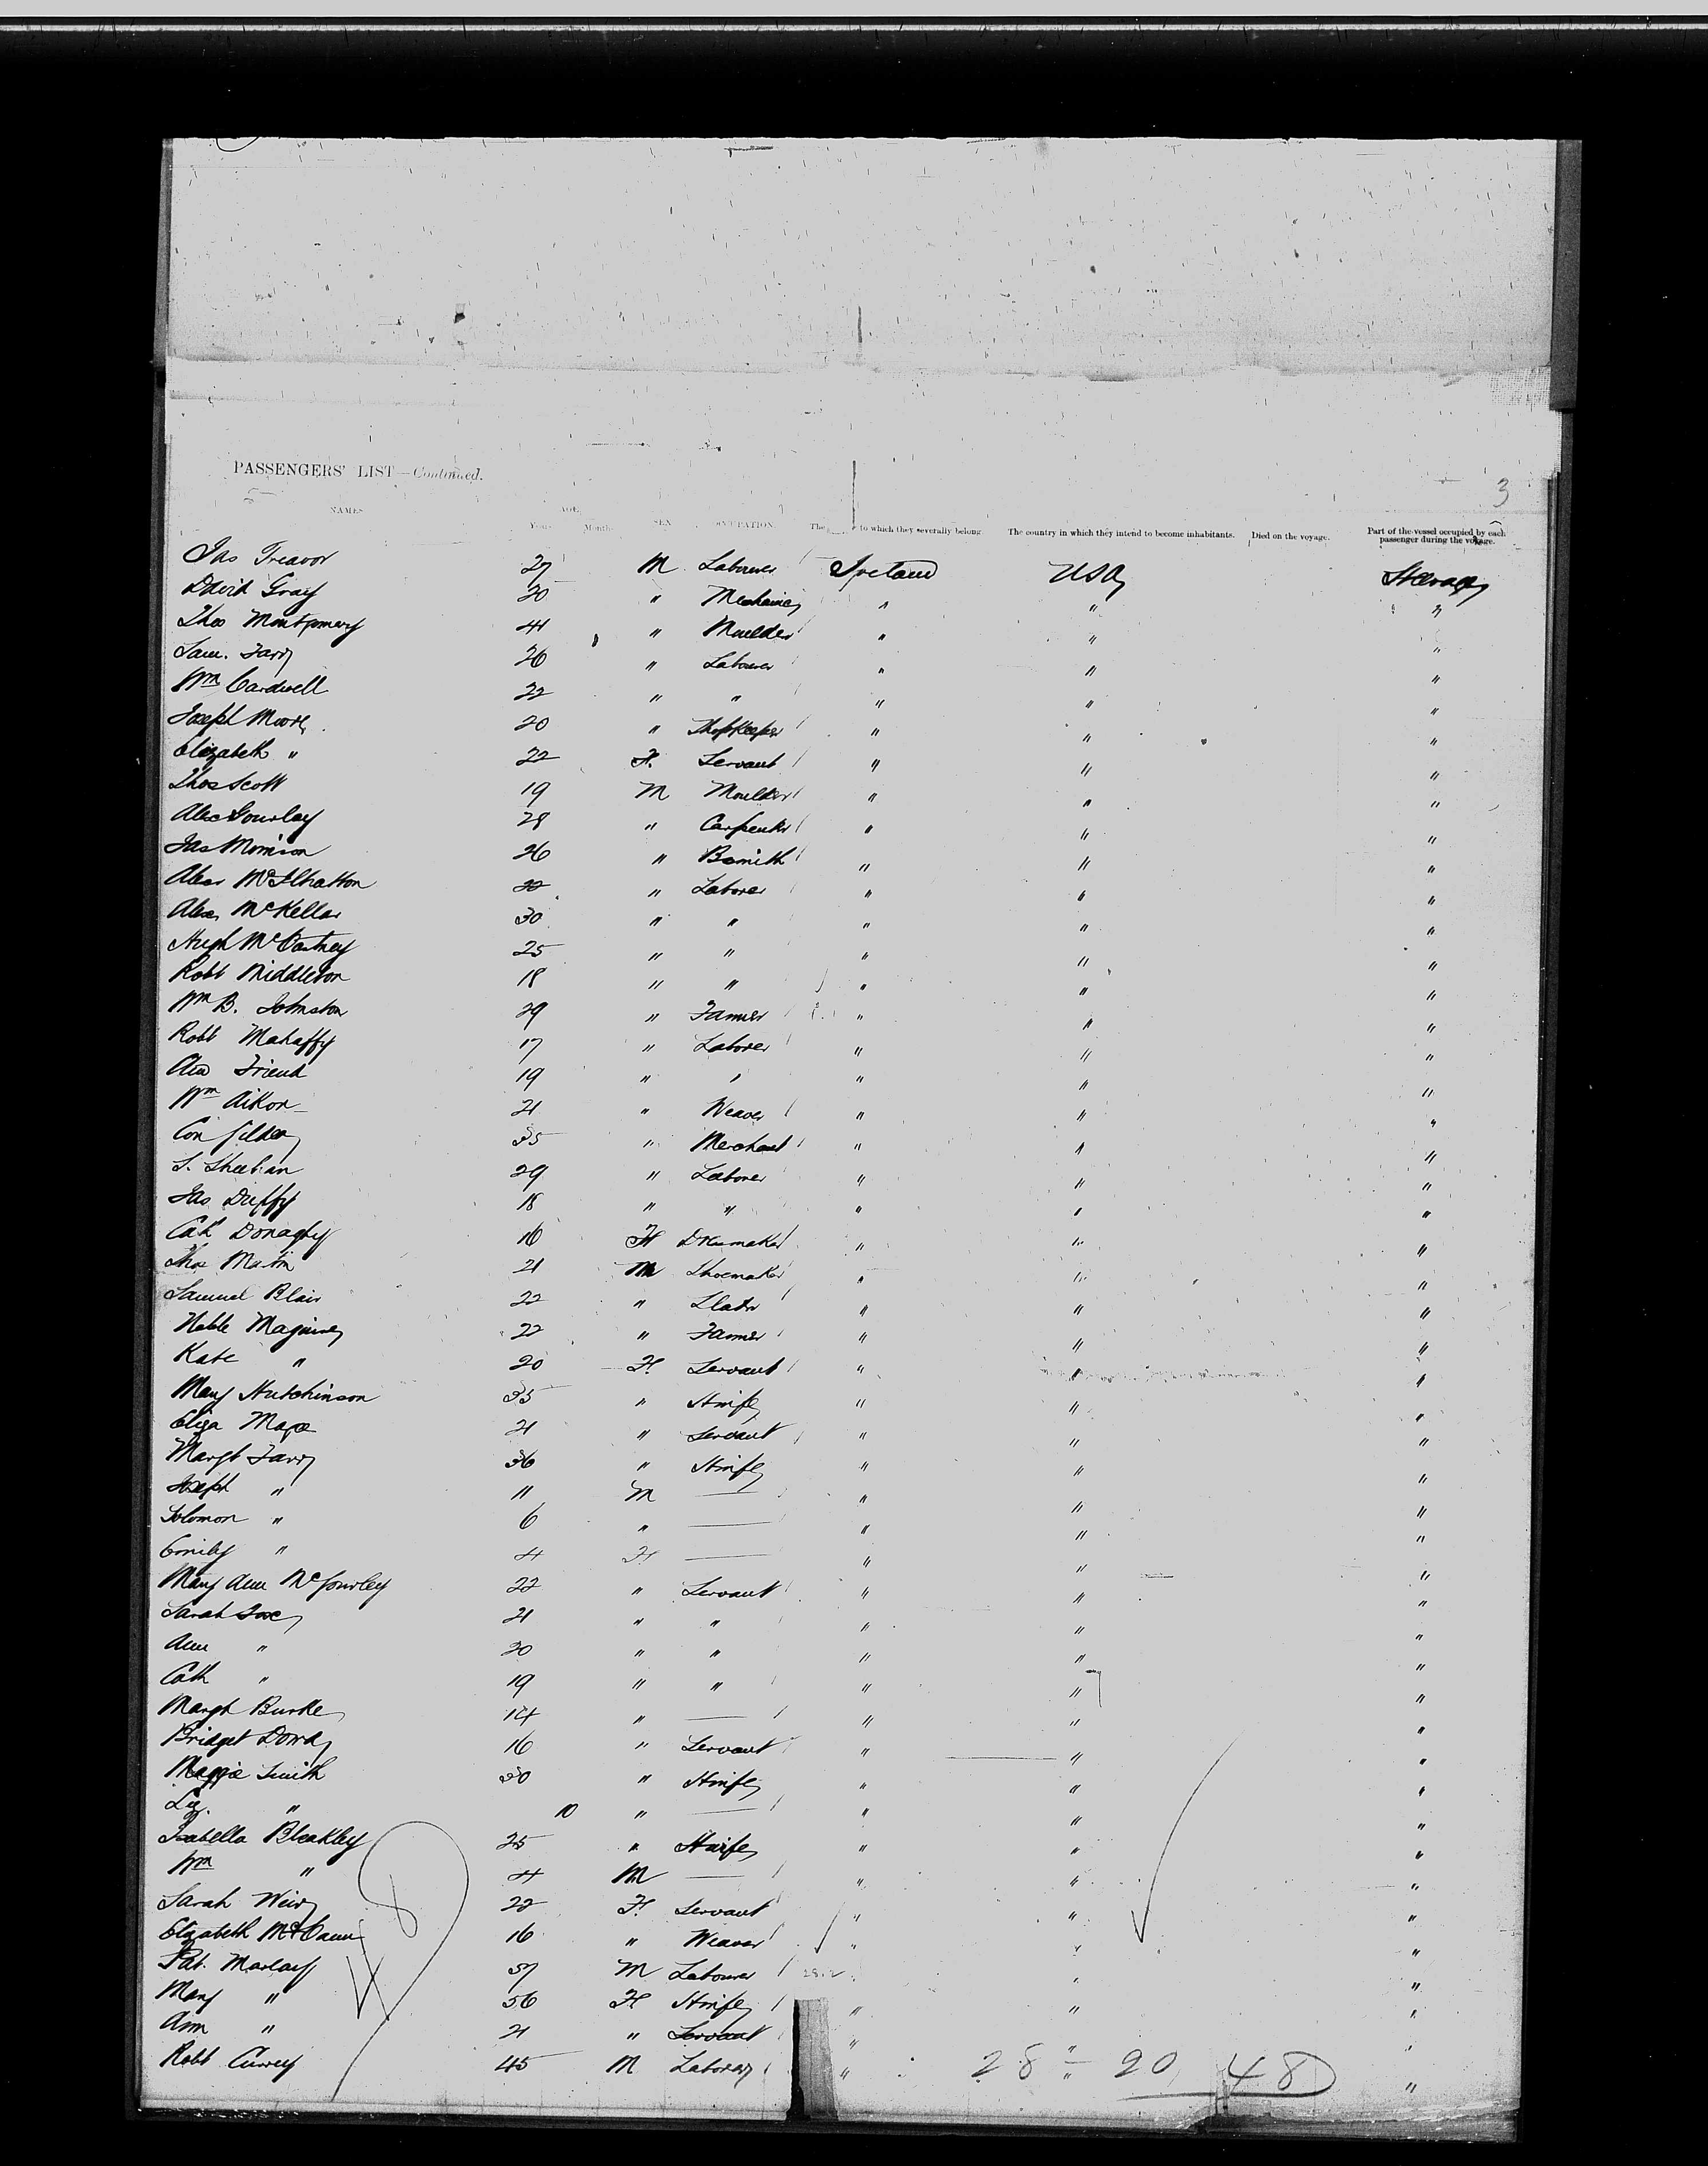 PASSENGERS' LIST—Continued.
3
NAMES AGE. Years Months SEX OCCUPATION. The to which they severally belong The country in which they intend to become inhabitants. Died on the voyage. Part of the vessel occupied by each passenger during the voyage.
Jas Treavor 27 M Labourer Ireland USA Steerage
David Gray 20 " Mechanic " " "
Thos Montgomery 41 " Moulder " " "
Sam. 26 " Labourer " " "
Wm Cardwell 22 " " " " "
Joseph Moore 20 " Shopkeeper " " "
Elizabeth " 22 F. Servant " " "
Thos Scott 19 M Moulder " " "
Alex Gourley 28 " Carpenter " " "
Jas Morrison 26 " Bsmith " " "
Alexr 22 " Laborer " " "
Alex McKellar 30 " " " " "
Hugh McCartney 25 " " " " "
Robt Middleton 18 " " " " "
Wm B. Johnston 29 " Farmer " " "
Robt Mahaffy 17 " Laborer " " "
Friend 19 " " " " "
Wm Aiken 21 " Weaver " " "
Con Gilday 35 " Merchant " " "
S. Sheehan 29 " Laborer " " "
Jas Duffy 18 " " " " "
Cath Donaghy 16 F Dresmaker " " "
Thos Martin 21 M Shoemaker " " "
Samuel Blair 22 " Slater " " "
Noble Maguire 22 " Farmer " " "
Kate " 20 F. Servant " " "
Mary Hutchinson 35 " Hwife " " "
Eliza 21 " Servant " " "
Margt 36 " Hwife " " "
Joseph " 11 M — " " "
Solomon " 6 " — " " "
Emily " 4 F — " " "
Mary Ann McGourley 22 " Servant " " "
Sarah Foxe 21 " " " " "
Ann " 20 " " " " "
Cath " 19 " " " " "
Margt Burke 14 " — " " "
Bridget Dowd 16 " Servant " " "
Maggie Smith 30 " Hwife " " "
Liz. " 10 " — " " "
Isabella Bleakley 25 " Hwife " " "
Wm " 4 M — " " "
Sarah Weir 22 F. Servant " " "
Elizabeth McCann 16 " Weaver " " "
Pat. Marlay 57 M Labourer " " "
Mary " 56 F Hwife " " "
Ann " 21 " Servant " " "
Robt Curry 45 M Laborer " " "
48
28 - 20 48